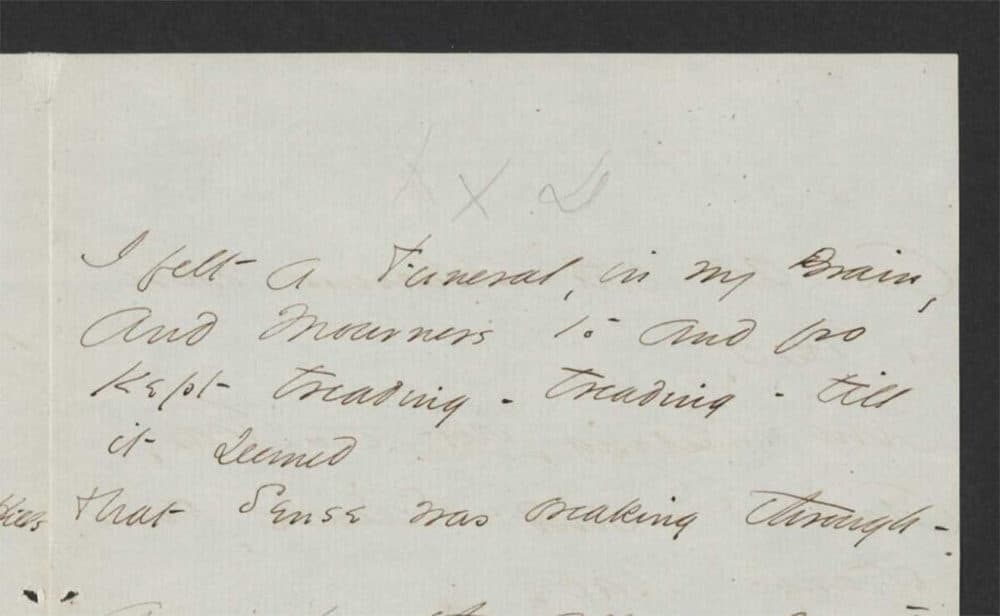 X X D
I felt a Funeral, in my Brain,
And Mourners to and fro
Kept treading - treading - till
it seemed
That Sense was breaking through -